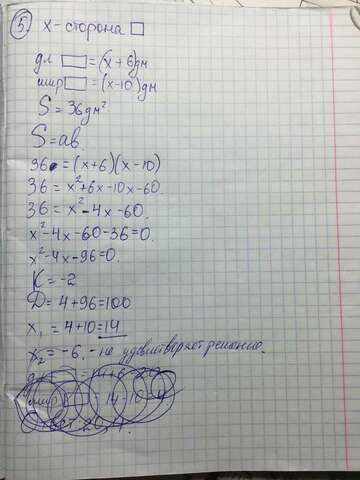 5) x - сторона □
дл ▭ = (x+6) дм
шир ▭ = (x-10) дм
S = 36 дм²
S = ab.
36 = (x+6)(x-10)
36 = x²+6x-10x-60.
36 = x²-4x-60.
x²-4x-60-36=0.
x²-4x-96=0.
K = -2
D = 4+96=100
x₁ = 4+10=14
x₂ = -6. - не удовлетворяет